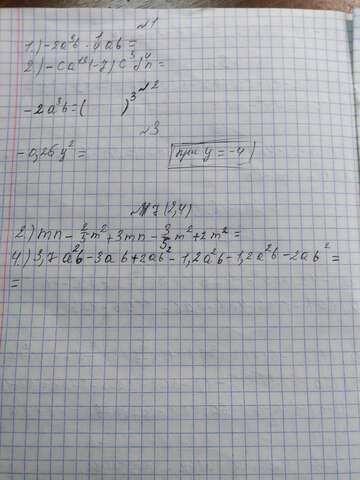 №1
1.) -2a³b · 4ab =
2.) -ca¹²(-7)c³b⁴n =
№2
-2a³b = ( )³
№3
-0,25y² = при y = -4
№7 (2,4)
2.) mn - 2/5 m² + 3mn - 3/5 m² + 2m² =
4.) 3,7a²b - 3ab + 2ab² - 1,2a²b - 1,2a²b - 2ab² =
=